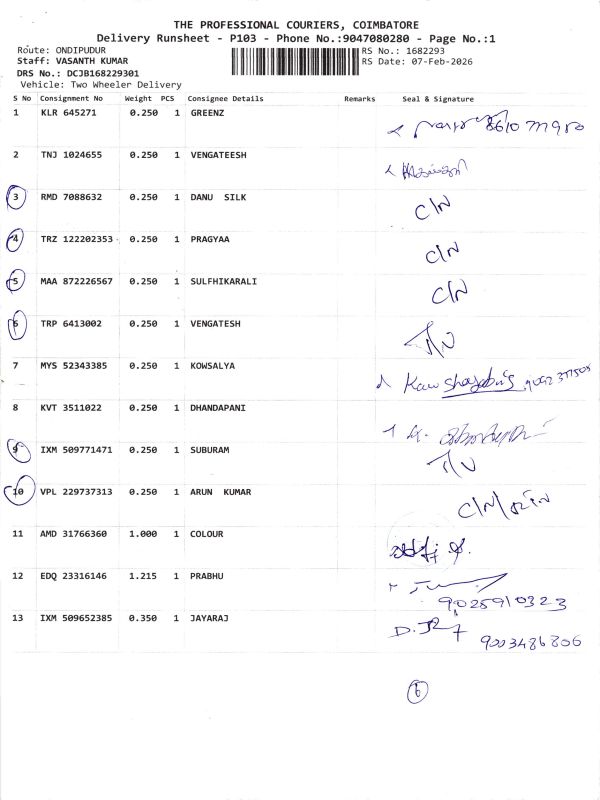 THE PROFESSIONAL COURIERS, COIMBATORE
Delivery Runsheet - P103 - Phone No.:9047080280 - Page No.:1
Route: ONDIPUDUR RS No.: 1682293
Staff: VASANTH KUMAR RS Date: 07-Feb-2026
DRS No.: DCJB168229301
Vehicle: Two Wheeler Delivery
S No Consignment No Weight PCS Consignee Details Remarks Seal & Signature
1 KLR 645271 0.250 1 GREENZ
2 TNJ 1024655 0.250 1 VENGATEESH
3 RMD 7088632 0.250 1 DANU SILK C/N
4 TRZ 122202353 0.250 1 PRAGYAA C/N
5 MAA 872226567 0.250 1 SULFHIKARALI C/N
6 TRP 6413002 0.250 1 VENGATESH
7 MYS 52343385 0.250 1 KOWSALYA
8 KVT 3511022 0.250 1 DHANDAPANI
9 IXM 509771471 0.250 1 SUBURAM
10 VPL 229737313 0.250 1 ARUN KUMAR C/N/
11 AMD 31766360 1.000 1 COLOUR
12 EDQ 23316146 1.215 1 PRABHU 9025910323
13 IXM 509652385 0.350 1 JAYARAJ 9003486806
6